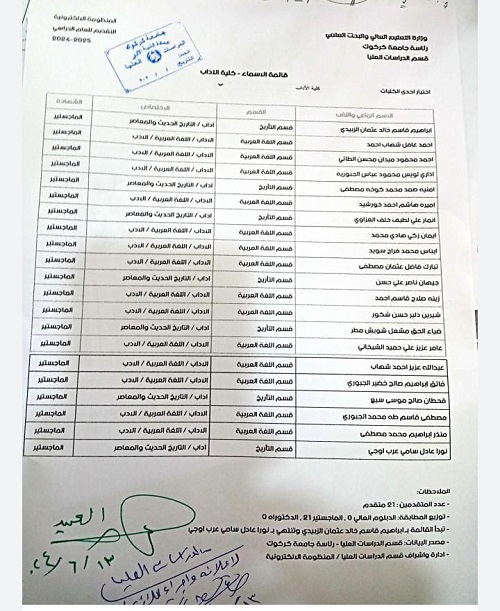 وزارة التعليم العالي والبحث العلمي
رئاسة جامعة كركوك
قسم الدراسات العليا
المنظومة الالكترونية
التقديم للعام الدراسي
2024-2025
جامعة كركوك
قائمة الاسماء - كلية الاداب
اختيار احدى الكليات كلية الآداب
الاسم الرباعي واللقب القسم الاختصاص الشهادة
ابراهيم قاسم خالد عثمان الزبيدي قسم التأريخ اداب / التاريخ الحديث والمعاصر الماجستير
احمد غافل شهاب احمد قسم اللغة العربية الاداب / اللغة العربية / الادب الماجستير
احمد محمود ميدان محسن الطائي قسم اللغة العربية الاداب / اللغة العربية / الادب الماجستير
اذاري لويس محمود عباس الجبوريه قسم اللغة العربية الاداب / اللغة العربية / الادب الماجستير
امنيه صمد محمد كوخه مصطفى قسم التأريخ اداب / التاريخ الحديث والمعاصر الماجستير
اميره هاشم احمد خورشيد قسم اللغة العربية الاداب / اللغة العربية / الادب الماجستير
انمار علي لطيف خلف العزاوي قسم التأريخ اداب / التاريخ الحديث والمعاصر الماجستير
ايمان زكي هادي محمد قسم اللغة العربية الاداب / اللغة العربية / الادب الماجستير
ايناس محمد فراج سويد قسم اللغة العربية الاداب / اللغة العربية / الادب الماجستير
تبارك فاضل عثمان مصطفى قسم اللغة العربية الاداب / اللغة العربية / الادب الماجستير
جيهان ناصر علي حسن قسم التأريخ اداب / التاريخ الحديث والمعاصر الماجستير
زينه صلاح قاسم احمد قسم اللغة العربية الاداب / اللغة العربية / الادب الماجستير
شيرين دلير حسن شكور قسم اللغة العربية الاداب / اللغة العربية / الادب الماجستير
ضياء الحق مشعل شويش مطر قسم التأريخ اداب / التاريخ الحديث والمعاصر الماجستير
عامر عزيز علي حميد الشيخاني قسم اللغة العربية الاداب / اللغة العربية / الادب الماجستير
عبدالله عزيز احمد شهاب قسم اللغة العربية الاداب / اللغة العربية / الادب الماجستير
فائق ابراهيم صالح خضير الجبوري قسم اللغة العربية الاداب / اللغة العربية / الادب الماجستير
قحطان صالح موسى سبع قسم التأريخ اداب / التاريخ الحديث والمعاصر الماجستير
مصطفى قاسم طه محمد الجبوري قسم اللغة العربية الاداب / اللغة العربية / الادب الماجستير
منذر ابراهيم محمد مصطفى قسم اللغة العربية الاداب / اللغة العربية / الادب الماجستير
نورا عادل سامي عرب اوجي قسم التأريخ اداب / التاريخ الحديث والمعاصر الماجستير
الملاحظات:
- عدد المتقدمين : 21 متقدم
- توزيع المطابقة: الدبلوم العالي 0 , الماجستير 21 , الدكتوراه 0
- تبدأ القائمة بـ ابراهيم قاسم خالد عثمان الزبيدي وتنتهي بـ نورا عادل سامي عرب اوجي
- مصدر البيانات: قسم الدراسات العليا - رئاسة جامعة كركوك
- ادارة واشراف قسم الدراسات العليا / المنظومة الالكترونية
العميد